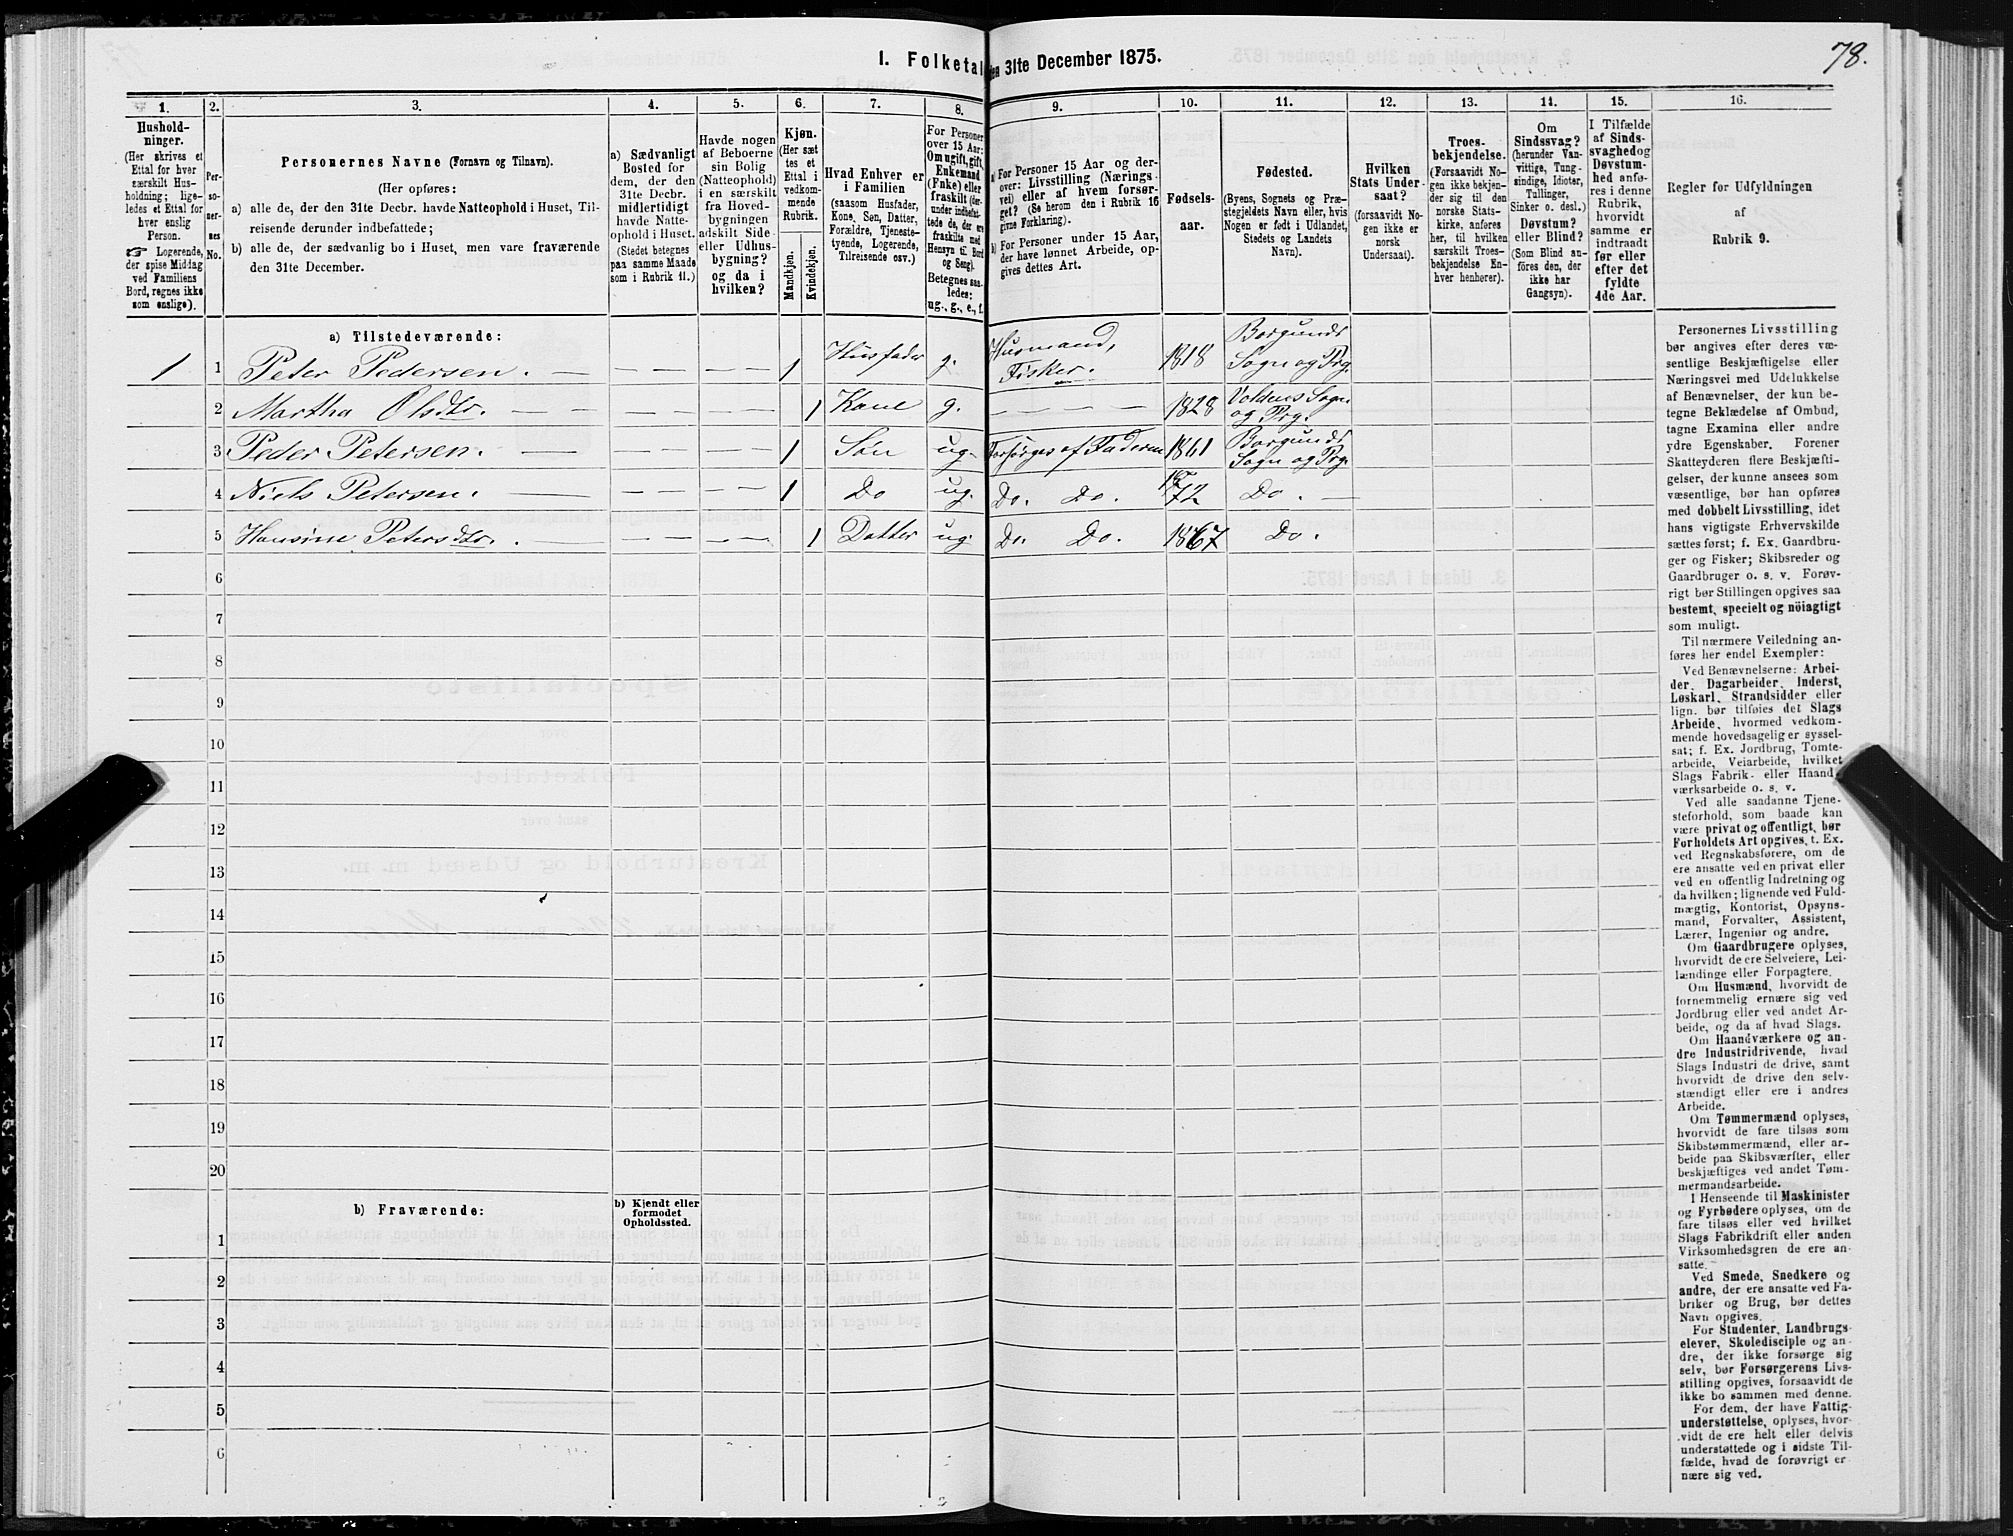 78.
I. Folketal den 31te December 1875.
1. 2. 3. 4. 5. 6. 7. 8. 9. 10. 11. 12. 13. 14. 15. 16.
Hushold-
ninger.
(Her skrives et
Ettal for hver
særskilt Hus-
holdning; lige-
ledes et Ettal for
hver enslig
Person.
☞ Logerende,
der spise Middag
ved Familiens
Bord, regnes ikke
som enslige).
Per-
so-
ner-
nes
No.
Personernes Navne (Fornavn og Tilnavn).
(Her opføres:
a) alle de, der den 31te Decbr. havde Natteophold i Huset, Til-
reisende derunder indbefattede;
b) alle de, der sædvanlig bo i Huset, men vare fraværende
den 31te December.
a) Sædvanligt
Bosted for
dem, der den
31te Decbr.
midlertidigt
havde Natte-
ophold i Huset.
(Stedet betegnes
paa samme Maade
som i Rubrik 11.)
Havde nogen
af Beboerne
sin Bolig
(Natteophold)
i en særskilt
fra Hoved-
bygningen
adskilt Side-
eller Udhus-
bygning?
og da i
hvilken?
Kjøn.
(Her sæt
tes et
Ettal i
vedkom-
mende
Rubrik.
Mandkjøn.
Kvindekjøn.
Hvad Enhver er
i Familien
(saasom Husfader,
Kone, Søn, Datter,
Forældre, Tjeneste-
tyende, Logerende,
Tilreisende osv.)
For Personer
over 15 Aar:
Om ugift, gift,
Enkemand
(Enke) eller
fraskilt (der-
under indbefat-
tede de, der ere
fraskilte med
Hensyn til Bord
og Seng).
Betegnes saa-
ledes:
ug., g., e., f.
a) For Personer 15 Aar og der-
over: Livsstilling (Nærings-
vei) eller af hvem forsør-
get? (Se herom den i Rubrik 16
givne Forklaring).
b) For Personer under 15 Aar,
der have lønnet Arbeide, op-
gives dettes Art.
Fødsels-
aar.
Fødested.
(Byens, Sognets og Præ-
stegjeldets Navn eller, hvis
Nogen er født i Udlandet,
Stedets og Landets
Navn).
Hvilken
Stats Under-
saat?
(forsaavidt No-
gen ikke er
norsk
Undersaat).
Troes-
bekjendelse.
(Forsaavidt No-
gen ikke bekjen-
der sig til den
norske Stats-
kirke, anføres
her, til hvilken
særskilt Troes-
bekjendelse En-
hver henhører).
Om
Sindssvag?
(herunder Van-
vittige, Tung-
sindige, Idioter,
Tullinger,
Sinker o. desl.)
Døvstum?
eller Blind?
(Som Blind an-
føres den, der
ikke har
Gangsyn).
I Tilfælde
af Sinds-
svaghed og
Døvstum-
hed anfø-
res i denne
Rubrik,
hvorvidt
samme er
indtraadt
før eller
efter det
fyldte
4de Aar.
Regler for Udfyldningen
af
Rubrik 9.
a) Tilstedeværende:
1 1 Peter Pedersen. — — — — — 1 Husfader g. Husmand, Fisker. 1818 Borgunds Sogn og Prg.
2 Martha Olsdtr. — — — — — 1 Kone g. — — — — 1828 Voldens Sogn og Prg.
3 Peder Petersen. — — — — — 1 Søn ug. Forsørges af Faderen 1861 Borgunds Sogn og Prg.
4 Niels Petersen. — — — — — 1 Do ug. Do. Do. 1872 Do. —
5 Hansine Petersdtr. — — — — — 1 Datter ug. Do. Do. 1867 Do.
6
7
8
9
10
11
12
13
14
15
16
17
18
19
20
b) Fraværende:
b) Kjendt eller
formodet
Opholdssted.
1
2
3
4
5
6
Personernes Livsstilling
bør angives efter deres væ-
sentlige Beskjæftigelse eller
Næringsvei med Udelukkelse
af Benævnelser, der kun be-
tegne Beklædelse af Ombud,
tagne Examina eller andre
ydre Egenskaber. Forener
Skatteyderen flere Beskjæfti-
gelser, der kunne ansees som
væsentlige, bør han opføres
med dobbelt Livsstilling, idet
hans vigtigste Erhvervskilde
sættes først; f. Ex. Gaardbru-
ger og Fisker; Skibsreder og
Gaardbruger o. s. v. Forøv-
rigt bør Stillingen opgives saa
bestemt, specielt og nöiagtigt
som muligt.
Til nærmere Veiledning an-
føres her endel Exempler:
Ved Benævnelserne: Arbei-
der, Dagarbeider, Inderst,
Løskarl, Strandsidder eller
lign. bør tilføies det Slags
Arbeide, hvormed vedkom-
mende hovedsagelig er syssel-
sat; f. Ex. Jordbrug, Tomte-
arbeide, Veiarbeide, hvilket
Slags Fabrik- eller Haand-
værksarbeide o. s. v.
Ved alle saadanne Tjene-
steforhold, som baade kan
være privat og offentligt, bør
Forholdets Art opgives, f. Ex.
ved Regnskabsførere, om de
ere ansatte ved en privat eller
ved en offentlig Indretning og
da hvilken; lignende ved Fuld-
mægtig, Kontorist, Opsyns-
mand, Forvalter, Assistent,
Lærer, Ingeniør og andre.
Om Gaardbrugere oplyses,
hvorvidt de ere Selveiere, Lei-
lændinge eller Forpagtere.
Om Husmænd, hvorvidt de
fornemmelig ernære sig ved
Jordbrug eller ved andet Ar-
beide, og da af hvad Slags.
Om Haandværkere og an-
dre Industridrivende, hvad
Slags Industri de drive, samt
hvorvidt de drive den selv-
stændigt eller ere i andres
Arbeide.
Om Tømmermænd oplyses,
hvorvidt de fare tilsøs som
Skibstømmermænd, eller ar-
beide paa Skibsværfter, eller
beskjæftiges ved andet Tøm-
mermandsarbeide.
I Henseende til Maskinister
og Fyrbødere oplyses, om de
fare tilsøs eller ved hvilket
Slags Fabrikdrift eller anden
Virksomhedsgren de ere an-
satte.
Ved Smede, Snedkere og
andre, der ere ansatte ved Fa-
briker og Brug, bør dettes
Navn opgives.
For Studenter, Landbrugs-
elever, Skoledisciple og an-
dre, der ikke forsørge sig
selv, bør Forsørgerens Livs-
stilling opgives, forsaavidt de
ikke bo sammen med denne.
For dem, der have Fattig-
understøttelse, oplyses, hvor-
vidt de ere helt eller delvis
understøttede og i sidste Til-
fælde, hvad de forøvrigt er-
nære sig ved.